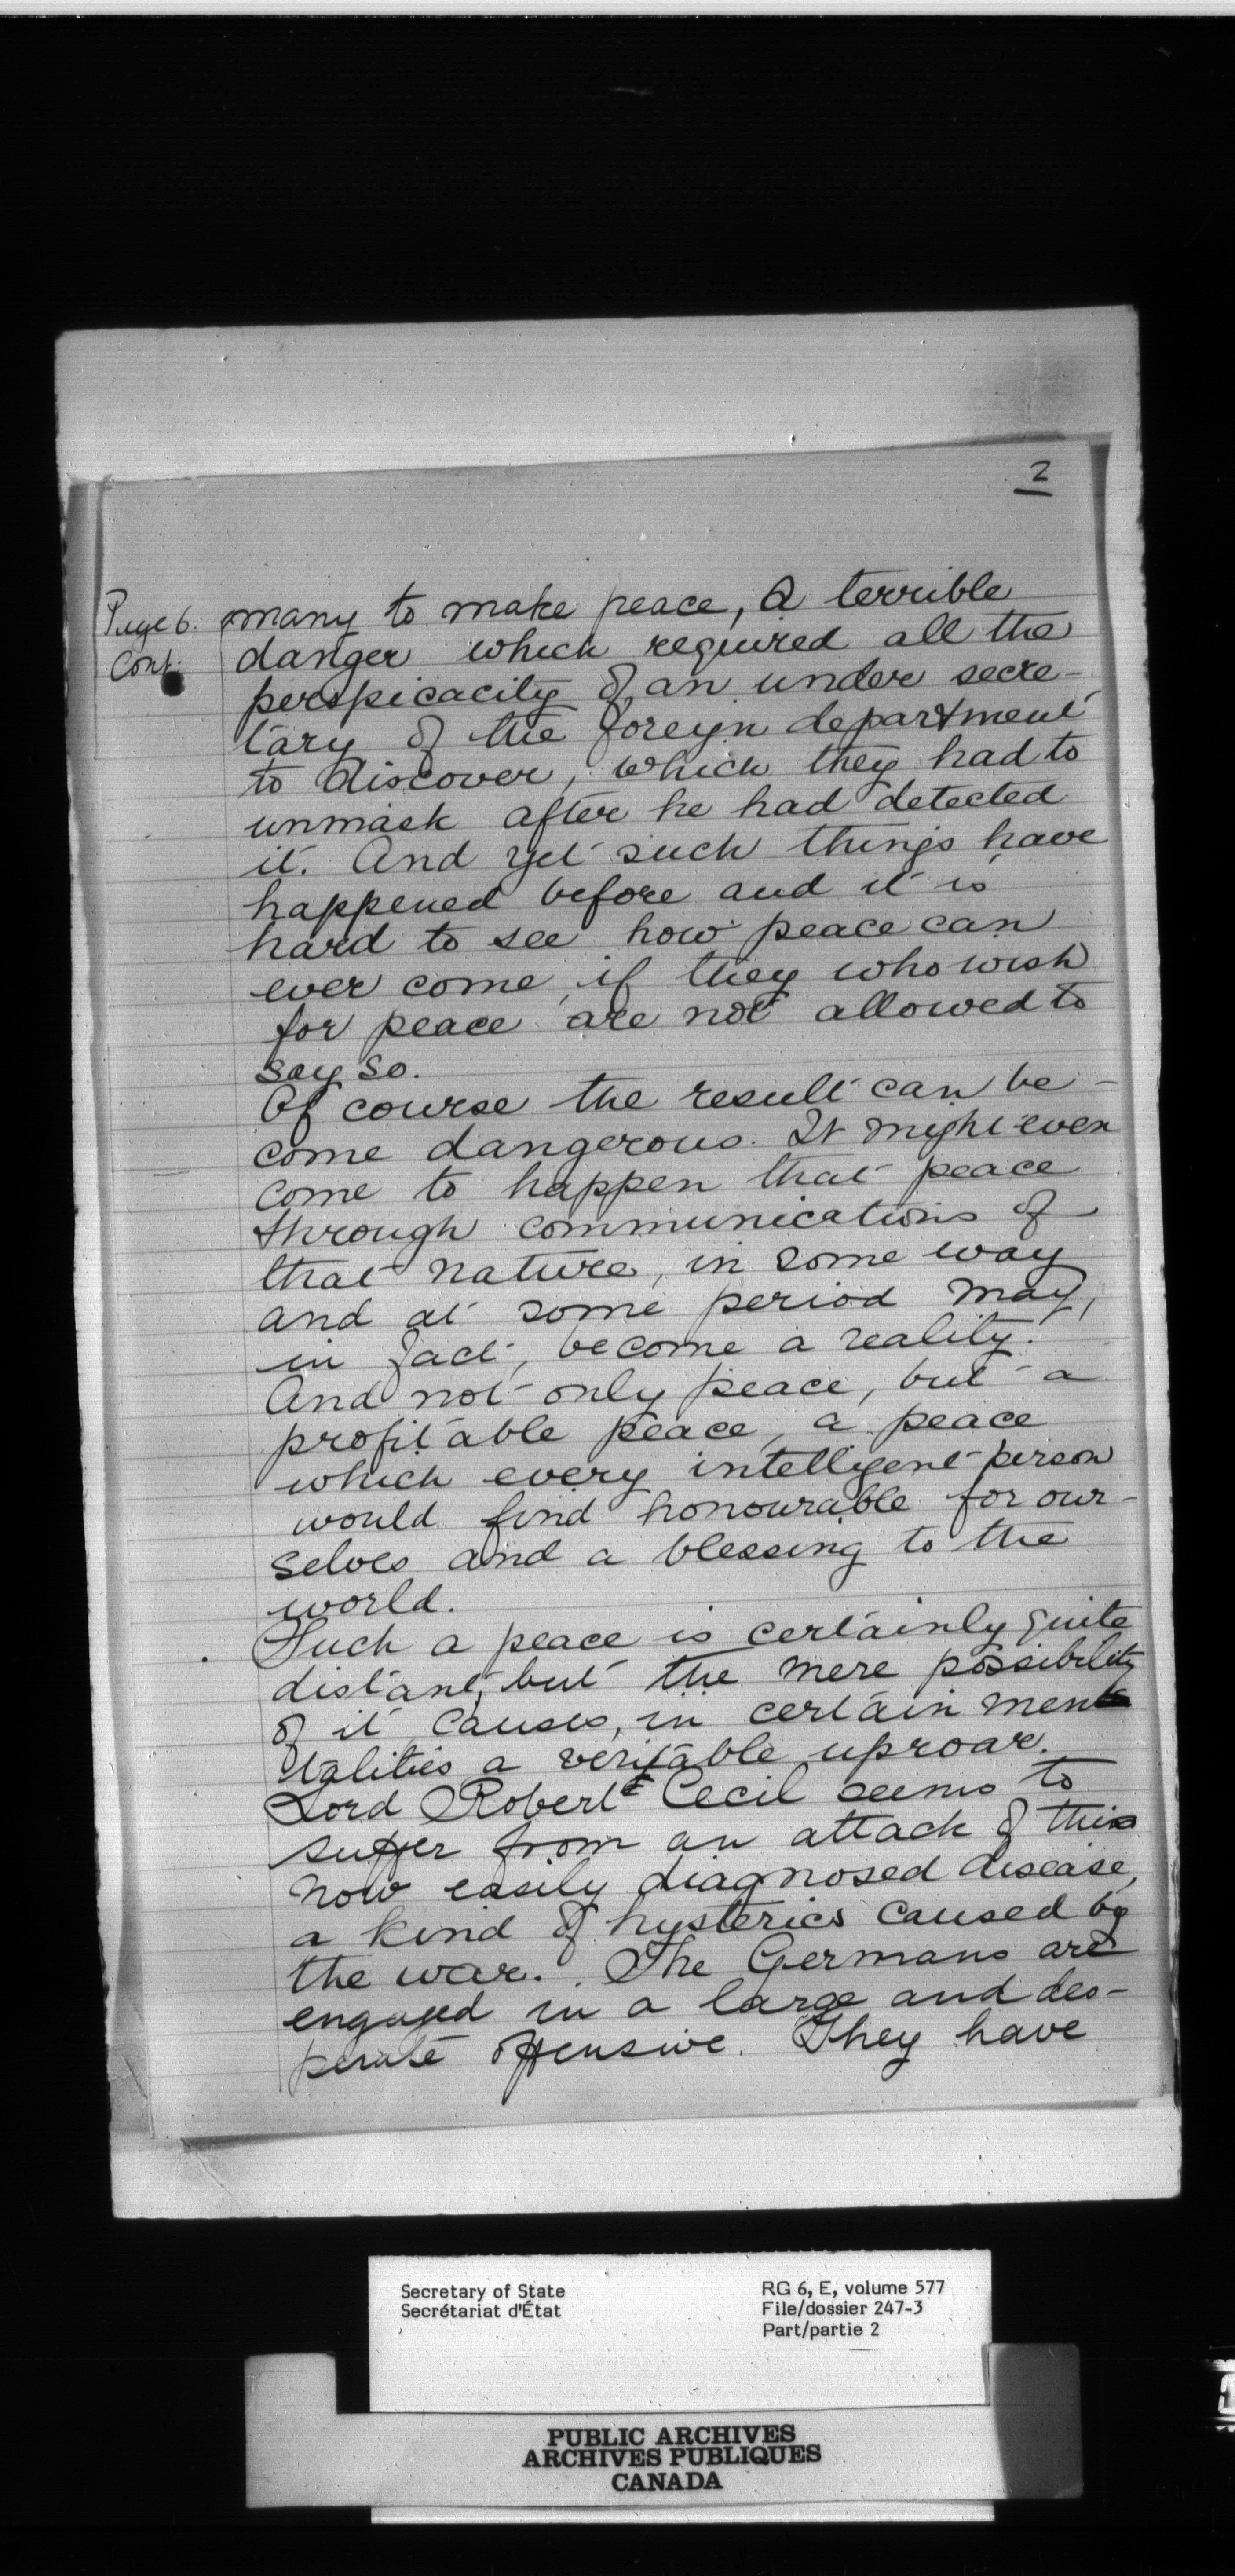 2
Page 6. many to make peace, a terrible
Cont. danger which required all the
perspicacity of an under secre-
tary of the foreign department
to discover, which they had to
unmask after he had detected
it. And yet such things have
happened before and it is
hard to see how peace can
ever come, if they who wish
for peace are not allowed to
say so.
Of course the result can be-
come dangerous. It might even
come to happen that peace
through communications of
that nature, in some way
and at some period may,
in fact, become a reality.
And not only peace, but a
profitable peace, a peace
which every intelligent person
would find honourable for our-
selves and a blessing to the
world.
Such a peace is certainly quite
distant, but the mere possibility
of it causes, in certain men
talities a veritable uproar.
Lord Robert Cecil seems to
suffer from an attack of this
now easily diagnosed disease,
a kind of hysterics caused by
the war. The Germans are
engaged in a large and des-
perate offensive. They have
Secretary of State
Secrétariat d'État
RG 6, E, volume 577
File/dossier 247-3
Part/partie 2
PUBLIC ARCHIVES
ARCHIVES PUBLIQUES
CANADA